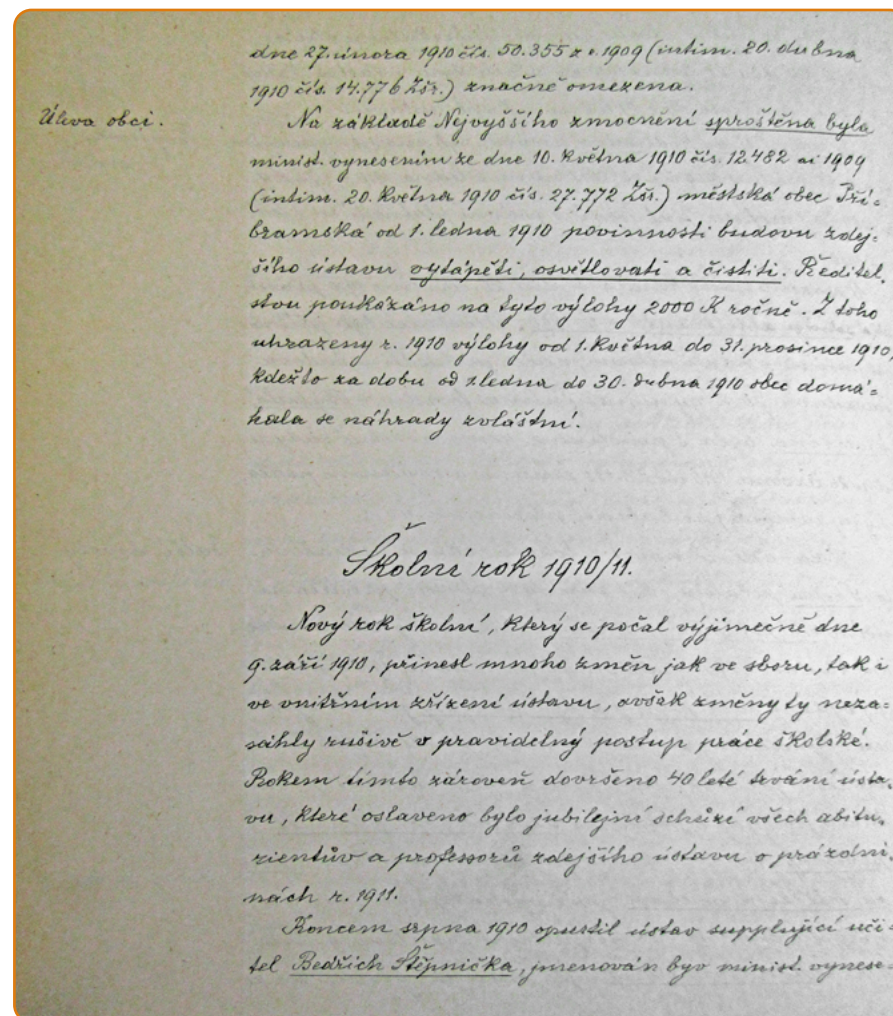 dne 27. února 1910 čís. 50.355 z r. 1909 (intim. 20. dubna
1910 čís. 14.776 Zšr.) značně omezena.
Úleva obci.
Na základě Nejvyššího zmocnění sproštěna byla
minist. vynesením ze dne 10. května 1910 čís. 12482 ai 1909
(intim. 20. května 1910 čís. 27.772 Zšr.) městská obec Pří-
bramská od 1. ledna 1910 povinnosti budovu zdej-
šího ústavu vytápěti, osvětlovati a čistiti. Ředitel-
stvu poukázáno na tyto výlohy 2000 K ročně. Z toho
uhrazeny r. 1910 výlohy od 1. května do 31. prosince 1910,
kdežto za dobu od 1. ledna do 30. dubna 1910 obec domá-
hala se náhrady zvláštní.
Školní rok 1910/11.
Nový rok školní, který se počal výjimečně dne
9. září 1910, přinesl mnoho změn jak ve sboru, tak i
ve vnitřním zřízení ústavu, avšak změny ty neza-
sáhly rušivě v pravidelný postup práce školské.
Rokem tímto zároveň dovršeno 40leté trvání ústa-
vu, které oslaveno bylo jubilejní schůzí všech abitu-
rientův a professorů zdejšího ústavu o prázdni-
nách r. 1911.
Koncem srpna 1910 opustil ústav supplující uči-
tel Bedřich Štěpnička, jmenován byv minist. vynese-